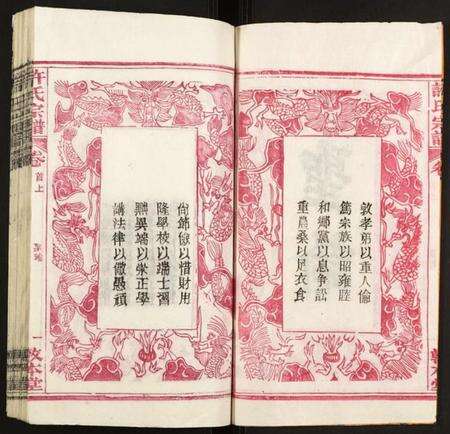 敦孝弟以重人倫
篤宗族以昭雍睦
和鄉黨以息爭訟
重農桑以足衣食
尚節儉以惜財用
隆學校以端士習
黜異端以崇正學
講法律以儆愚頑
許氏宗譜
卷
許氏宗譜
卷
首上
一
敦本堂
敦本堂